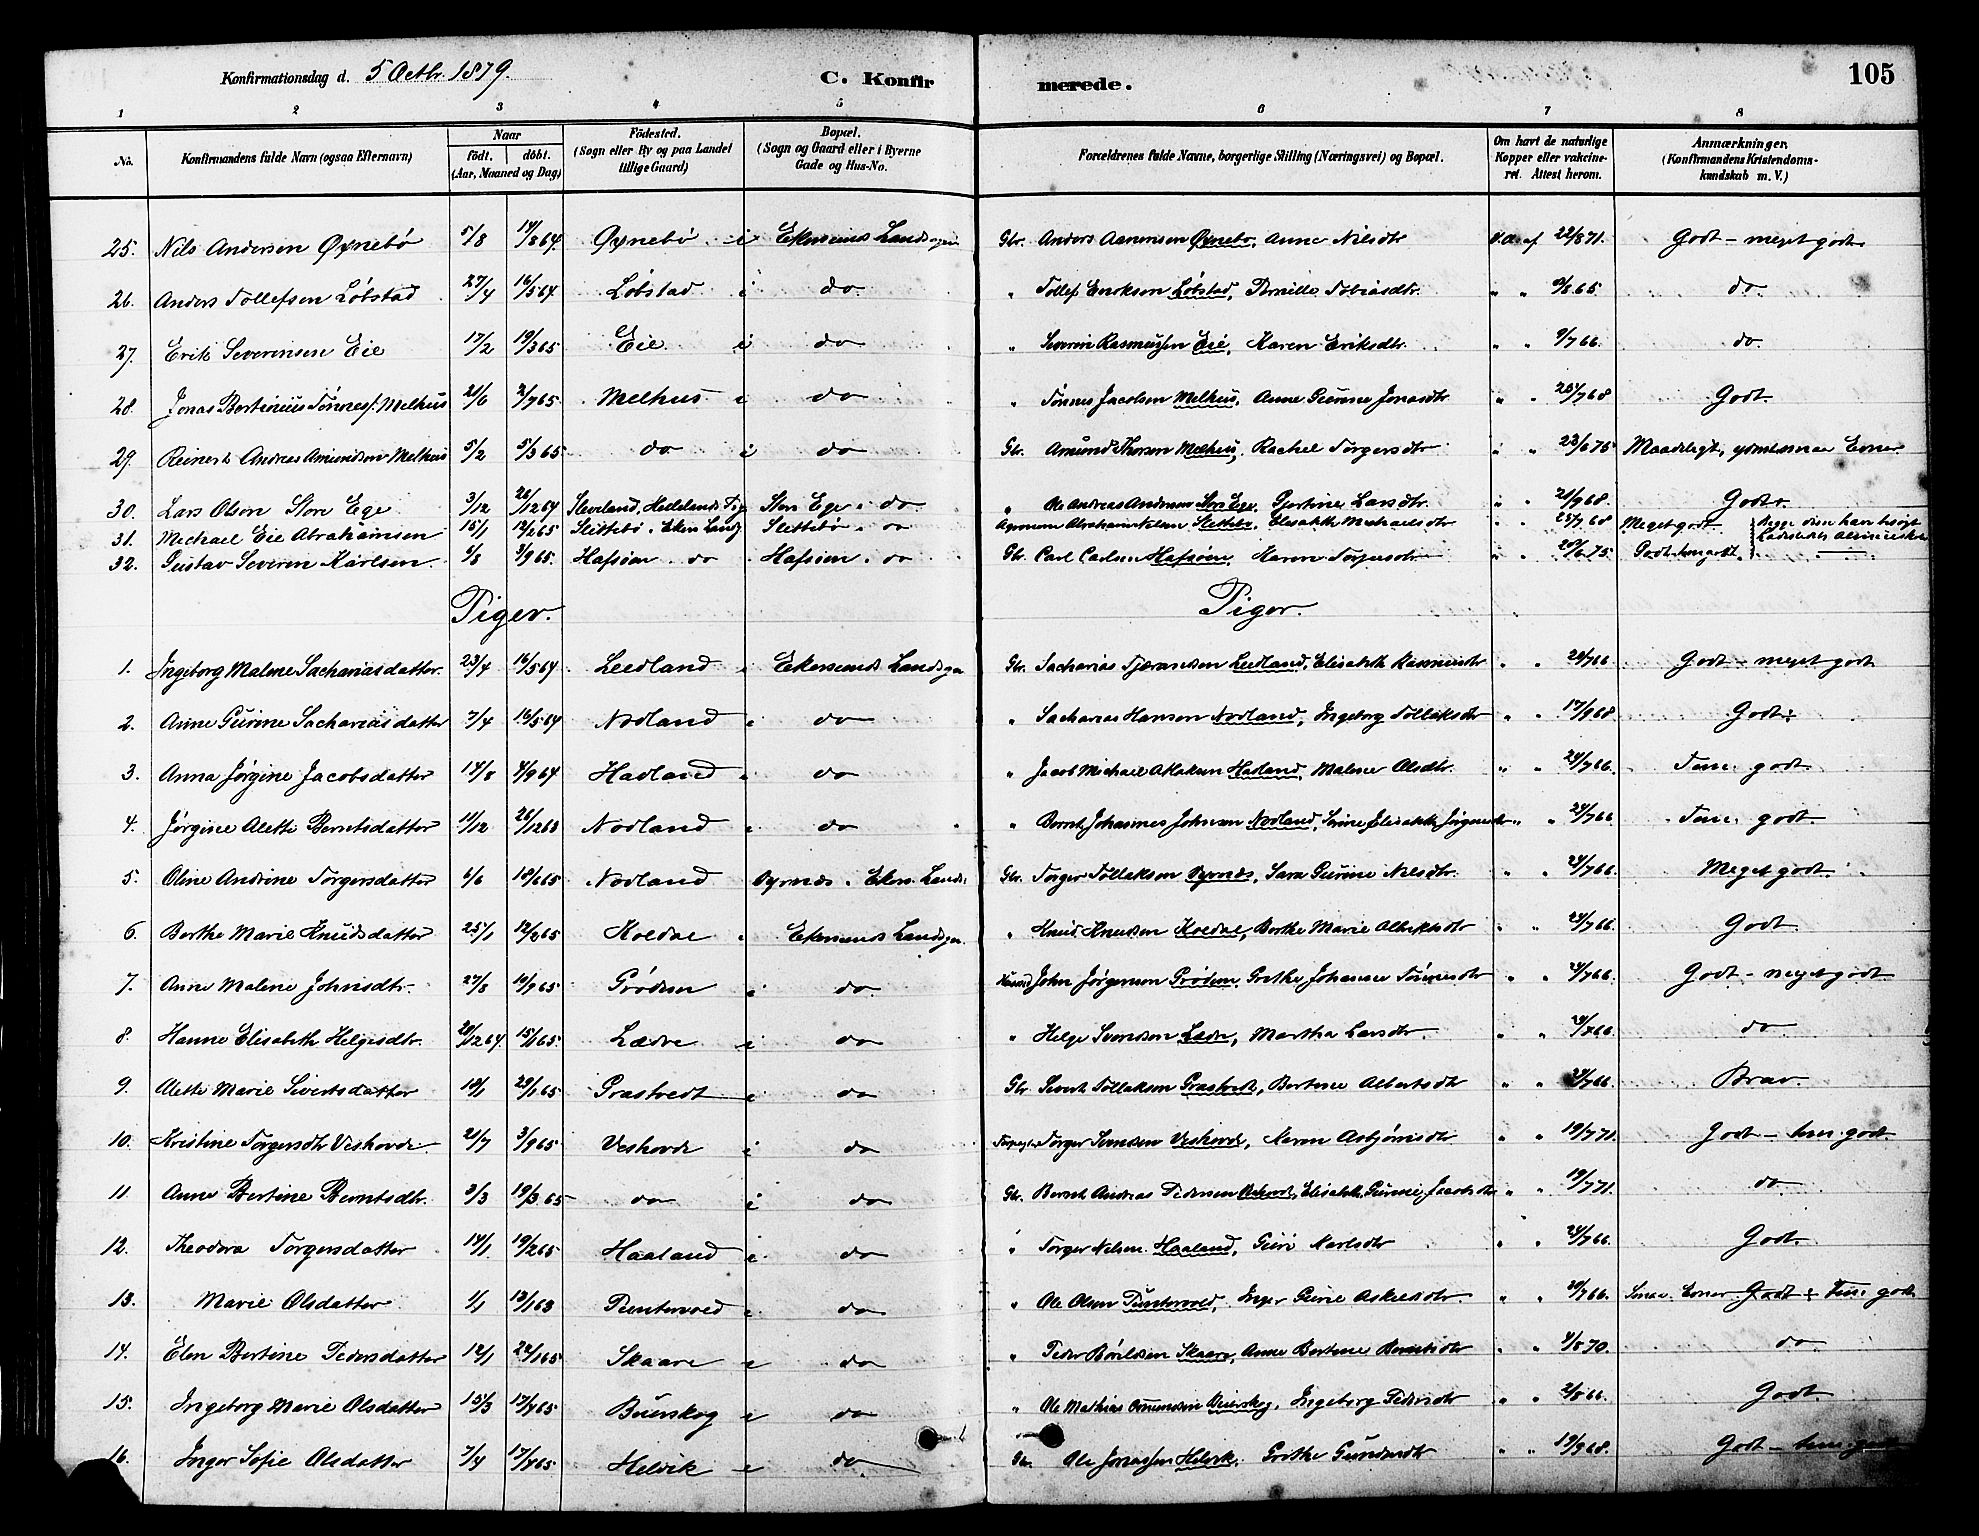 Konfirmationsdag d. 5 Octbr. 1879.
C. Konfirmerede.
105
1 2 3 4 5 6 7 8
No. Konfirmandens fulde Navn (ogsaa Efternavn) Naar födt. döbt. (Aar, Maaned og Dag) Födested. (Sogn eller By og paa Landet tillige Gaard) Bopæl. (Sogn og Gaard eller i Byerne Gade og Hus-No. Forældrenes fulde Navne, borgerlige Stilling (Næringsvei) og Bopæl. Om havt de naturlige Kopper eller vakcineret. Attest herom. Anmærkninger. (Konfirmandens Kristendomskundskab m. V.)
25. Nils Andersen Øxnebø 5/8 14/8 64. Øxnebø i Ekersunds Landsogn Gbr. Anders Aanensen Øxnebø, Anne Nilsdtr 22/8 71. Godt - meget godt
26. Anders Tollefsen Løbstad 27/4 16/5 64 Løbstad i do " Tollef Eriksen Løbstad, Pernille Tobiasdtr. " " do.
27. Erik Severinsen Eie 17/2 19/3 65 Eie i do " Severin Rasmussen Eie, Karen Eriksdtr. " " 9/7 66. do.
28. Jonas Bertinius Tønnes. Melhus 21/6 2/7 65. Melhus i do " Tønnes Jacobsen Melhus, Anne Gurine Jonasdtr " " 25/7 68 Godt.
29. Reinert Andreas Amundsen Melhus 5/2 5/3 65 do i do Gbr. Amund Thorsen Melhus, Rachel Torgersdtr " " 23/6 75 Maadeligt, Evner
30. Lars Olsen Store Ege 3/12 26/12 64 Sleveland, Hellelands Store Ege i do " Ole Andreas Andersen Store Ege, Gjertine Larsdtr. " 21/9 68. Godt.
31. Michael Eie Abrahamsen 15/1 12/2 65 Slettebø i Eker. Lands Slettebø i do Slettebø, Elisabeth Michaelsdtr " 25/7 68 Meget godt.
32. Gustav Severin Karlsen 4/8 3/9 65. Hafsøen do Hafsøen i do Gbr. Carl Carlsen Hafsøen Maren Torgersdtr " 6/75. Godt
Piger. Piger.
1. Ingeborg Malene Sachariasdatter 23/4 16/5 64 Leedland i Ekersunds Landsogn Gbr. Sacharias Tjerandsen Leedland, Elisabeth Rasmusdtr " " 24/7 66 Godt - meget godt
2. Anne Gurine Sachariasdatter 7/4 16/5 64 Nodland i do " Sacharias Hansen Nodland, Ingeborg Tollaksdtr " " 17/9 68 Godt
3. Anna Jørgine Jacobsdatter 14/8 4/9 64 Hadland i do " Jacob Michael Aslaksen Hadland, Malene Olsdtr. " " 24/7 66. Tem. godt.
4. Jørgine Alette Berntsdatter 11/12 26/12 63 Nodland i do " Bernt Johannes Johnsen Nodland, Serine Elisabeth Jørgensdtr " " 24/7 66. Tem. godt.
5. Oline Andrine Torgersdatter 6/6 18/6 65 Nodland Øyrnæs i Eker. Lands. Gbr. Torger Tollaksen Øyrnæs, Sara Gurine Nilsdtr. " " 24/7 66. Meget godt.
6. Berthe Marie Knudsdatter 25/1 12/2 65 Koldal i Ekersunds Landsogn " Knud Knudsen Koldal, Berthe Marie Albertsdtr " " 24/7 66. Godt.
7. Anne Malene Johnsdtr. 27/8 10/9 65 Grødem i do. Husmd John Jørgensen Grødem, Grethe Johanne Tønnesdtr " " 24/7 66. Godt - meget godt
8. Hanne Elisabeth Helgesdtr. 28/12 64 15/1 65. Lædre i do " Helge Svendsen Lædre, Martha Larsdtr. " " 24/7 66. do
9. Alette Marie Sivertsdatter 10/1 29/1 65 Grastvedt i do Gbr Sivert Tollaksen Grastvedt, Bertine Albertsdtr " " 24/7 66. Brav.
10. Kristine Torgersdtr Veshovde 21/7 3/9 65 Veshovde i do Torger Svendsen Veshovde, Maren Asbjørnsdtr " " 19/7 71. Godt - tem. godt.
11. Anne Bertine Berntsdtr. 3/3 19/3 65 do i do Gbr. Bernt Andreas Pedersen Veshovde, Elisabeth Gurine Jacobsdtr " " 19/7 71. do.
12. Theodora Torgersdatter 14/1 19/2 65 Haaland i do " Torger Nilsen Haaland, Guri Karlsdtr " " 24/7 66. Godt.
13. Marie Olsdatter 1/1 13/1 63 Puntervold i do " Ole Olsen Puntervold, Inger Gurie Askelsdtr. " " 20/7 66. Smaa Evner Godt Tem. godt.
14. Elen Bertine Pedersdatter 12/1 22/1 65 Skaare i do " Peder Bøildsen Skaare, Anne Bertine Berntsdtr " " 4/8 70. do.
15. Ingeborg Marie Olsdatter 15/3 17/4 65 Buerskog i do " Ole Mathias Omundsen Buerskog, Ingeborg Pedersdtr " " 2/8 66. Godt.
16. Inger Sofie Olsdatter 7/4 17/4 65 Helvik i do Ole Jonassen Helvik, Grethe Gundersdtr " " 19/9 68. Godt - tem. godt